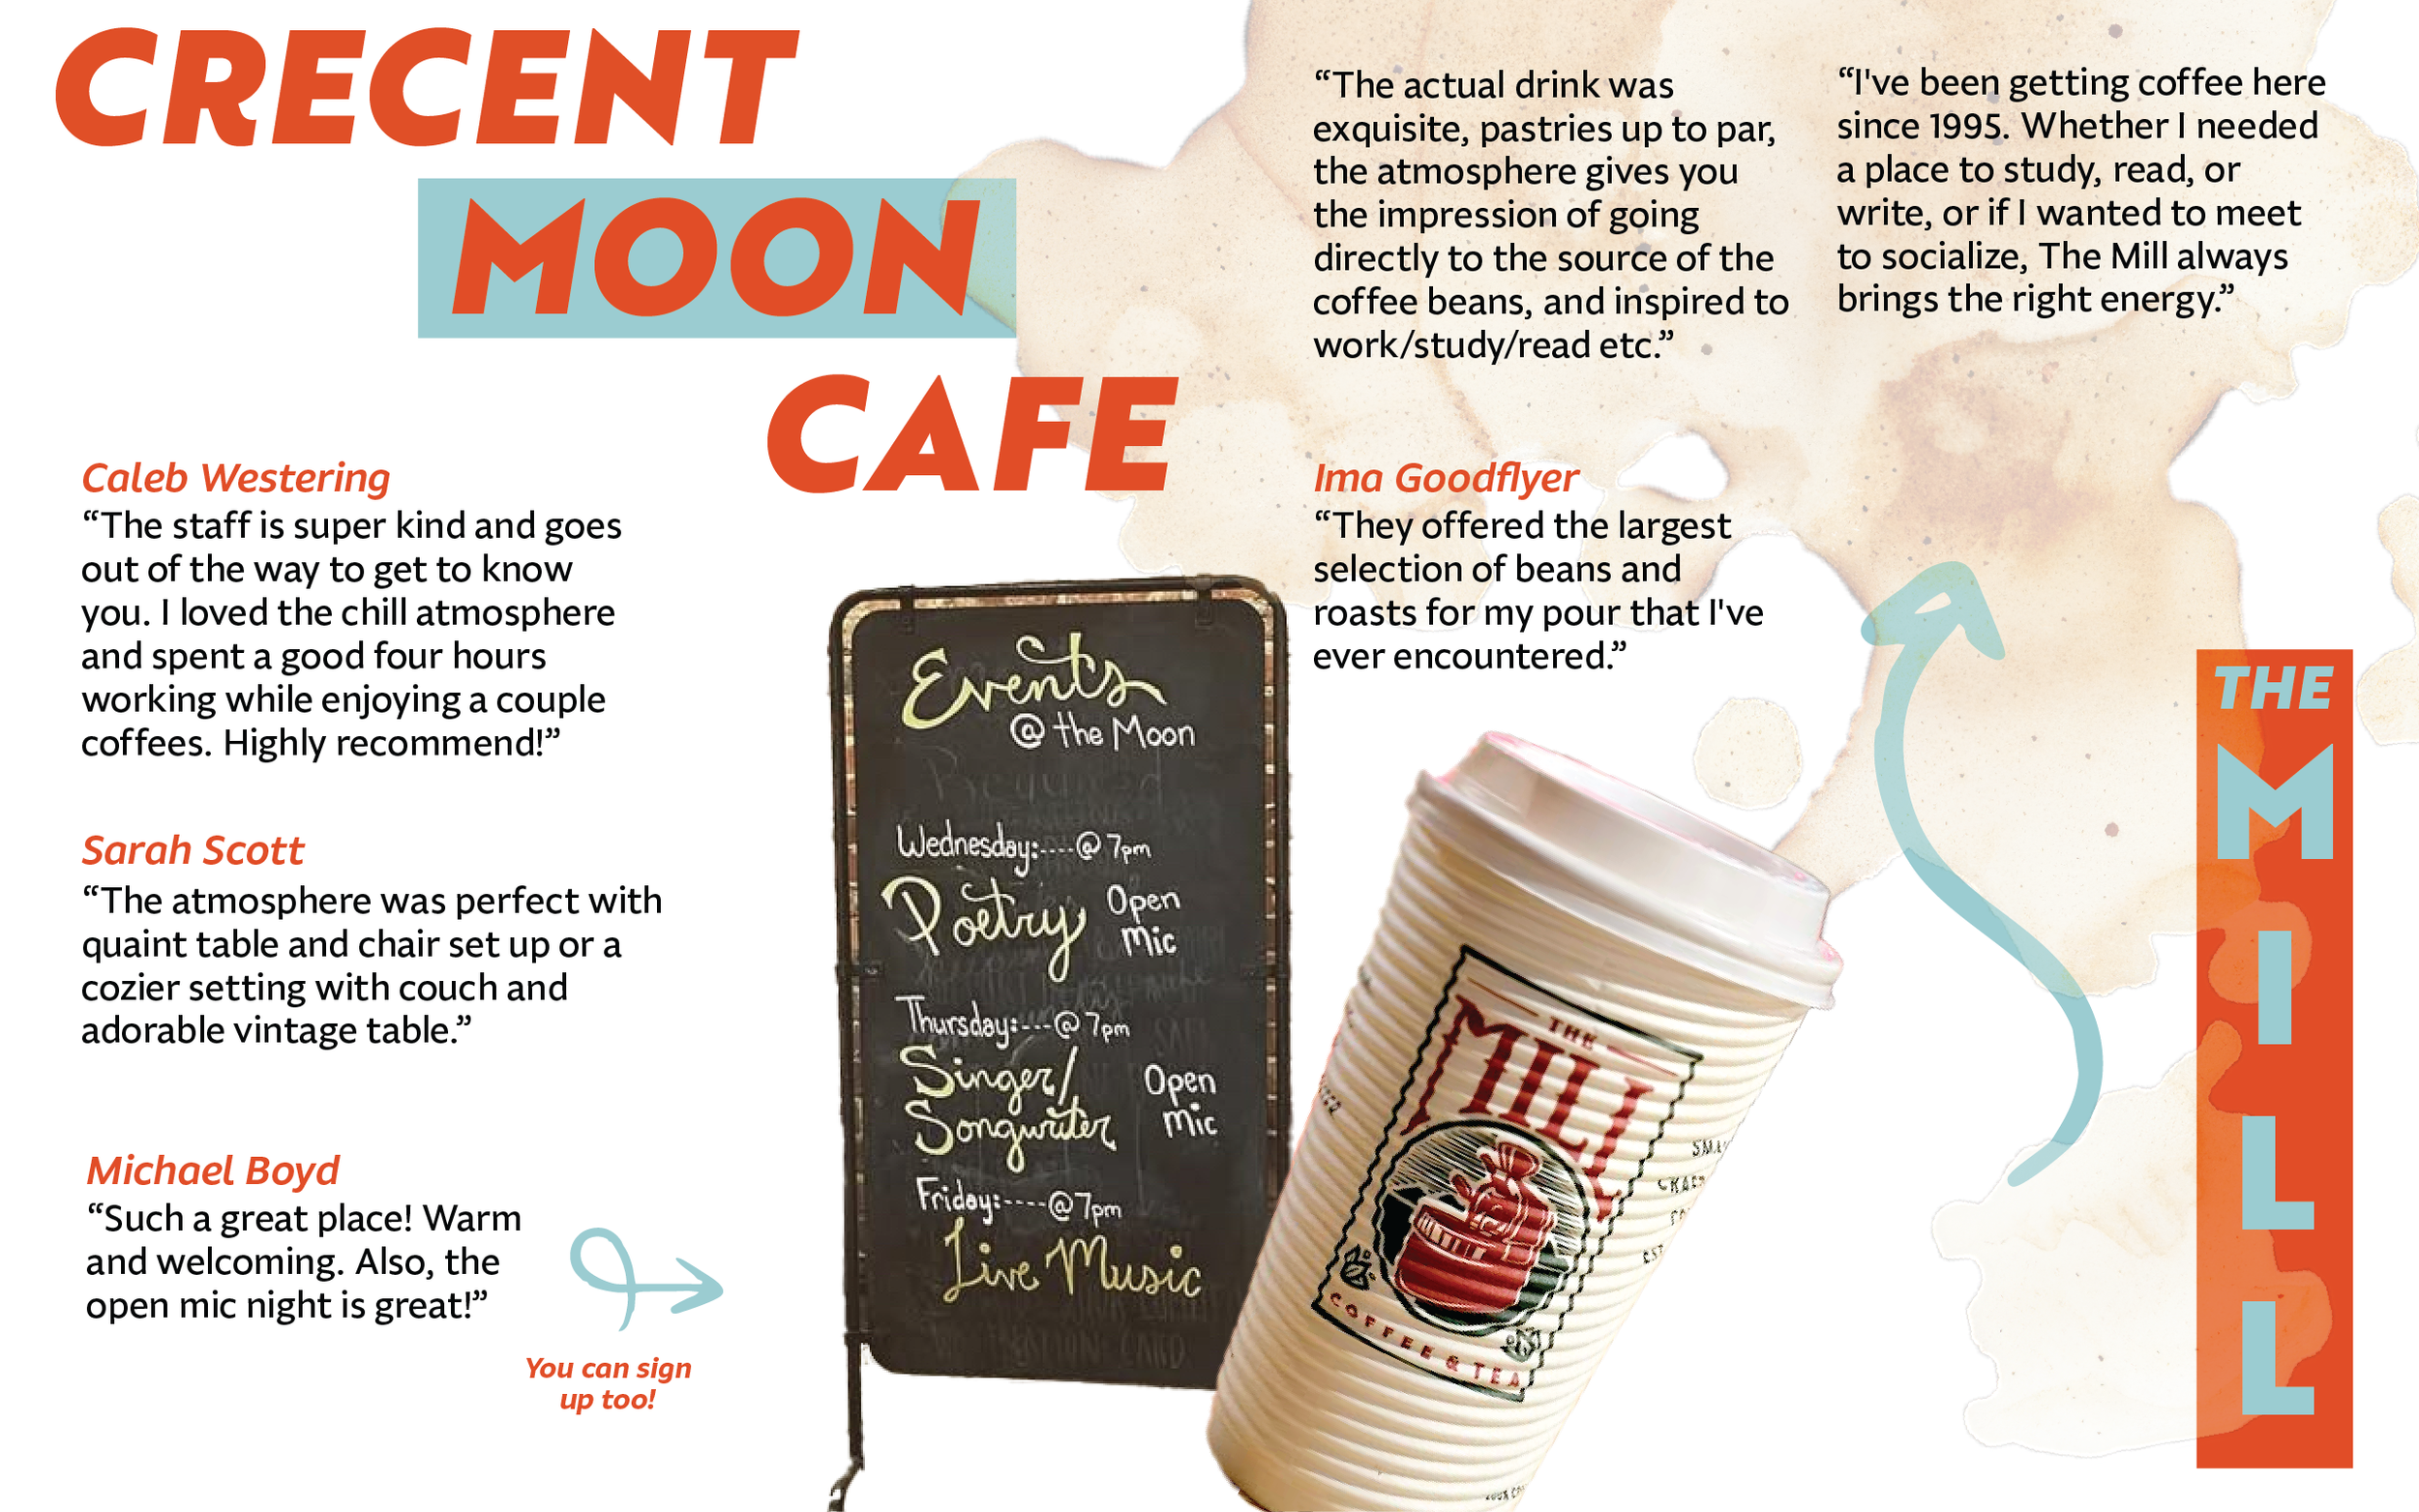 CRECENT
MOON
CAFE
Caleb Westering
“The staff is super kind and goes
out of the way to get to know
you. I loved the chill atmosphere
and spent a good four hours
working while enjoying a couple
coffees. Highly recommend!”
Sarah Scott
“The atmosphere was perfect with
quaint table and chair set up or a
cozier setting with couch and
adorable vintage table.”
Michael Boyd
“Such a great place! Warm
and welcoming. Also, the
open mic night is great!”
You can sign
up too!
Events
@ the Moon
Wednesday:----@ 7pm
Poetry Open
Mic
Thursday:---@ 7pm
Singer/ Open
Songwriter Mic
Friday:----@ 7pm
Live Music
“The actual drink was
exquisite, pastries up to par,
the atmosphere gives you
the impression of going
directly to the source of the
coffee beans, and inspired to
work/study/read etc.”
“I've been getting coffee here
since 1995. Whether I needed
a place to study, read, or
write, or if I wanted to meet
to socialize, The Mill always
brings the right energy.”
Ima Goodflyer
“They offered the largest
selection of beans and
roasts for my pour that I've
ever encountered.”
THE
MILL
COFFEE & TEA
THE
MILL